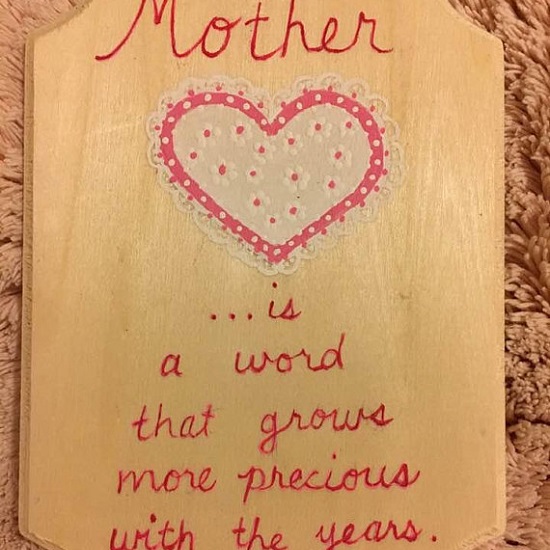 Mother
...is
a word
that grows
more precious
with the years.